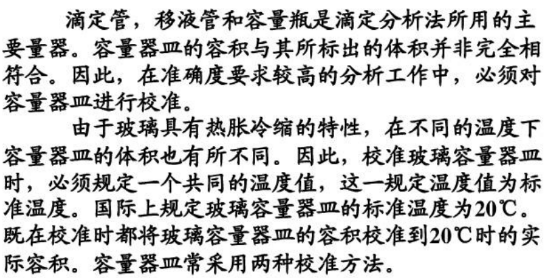 滴定管，移液管和容量瓶是滴定分析法所用的主
要量器。容量器皿的容积与其所标出的体积并非完全相
符合。因此，在准确度要求较高的分析工作中，必须对
容量器皿进行校准。
由于玻璃具有热胀冷缩的特性，在不同的温度下
容量器皿的体积也有所不同。因此，校准玻璃容量器皿
时，必须规定一个共同的温度值，这一规定温度值为标
准温度。国际上规定玻璃容量器皿的标准温度为20℃。
既在校准时都将玻璃容量器皿的容积校准到20℃时的实
际容积。容量器皿常采用两种校准方法。